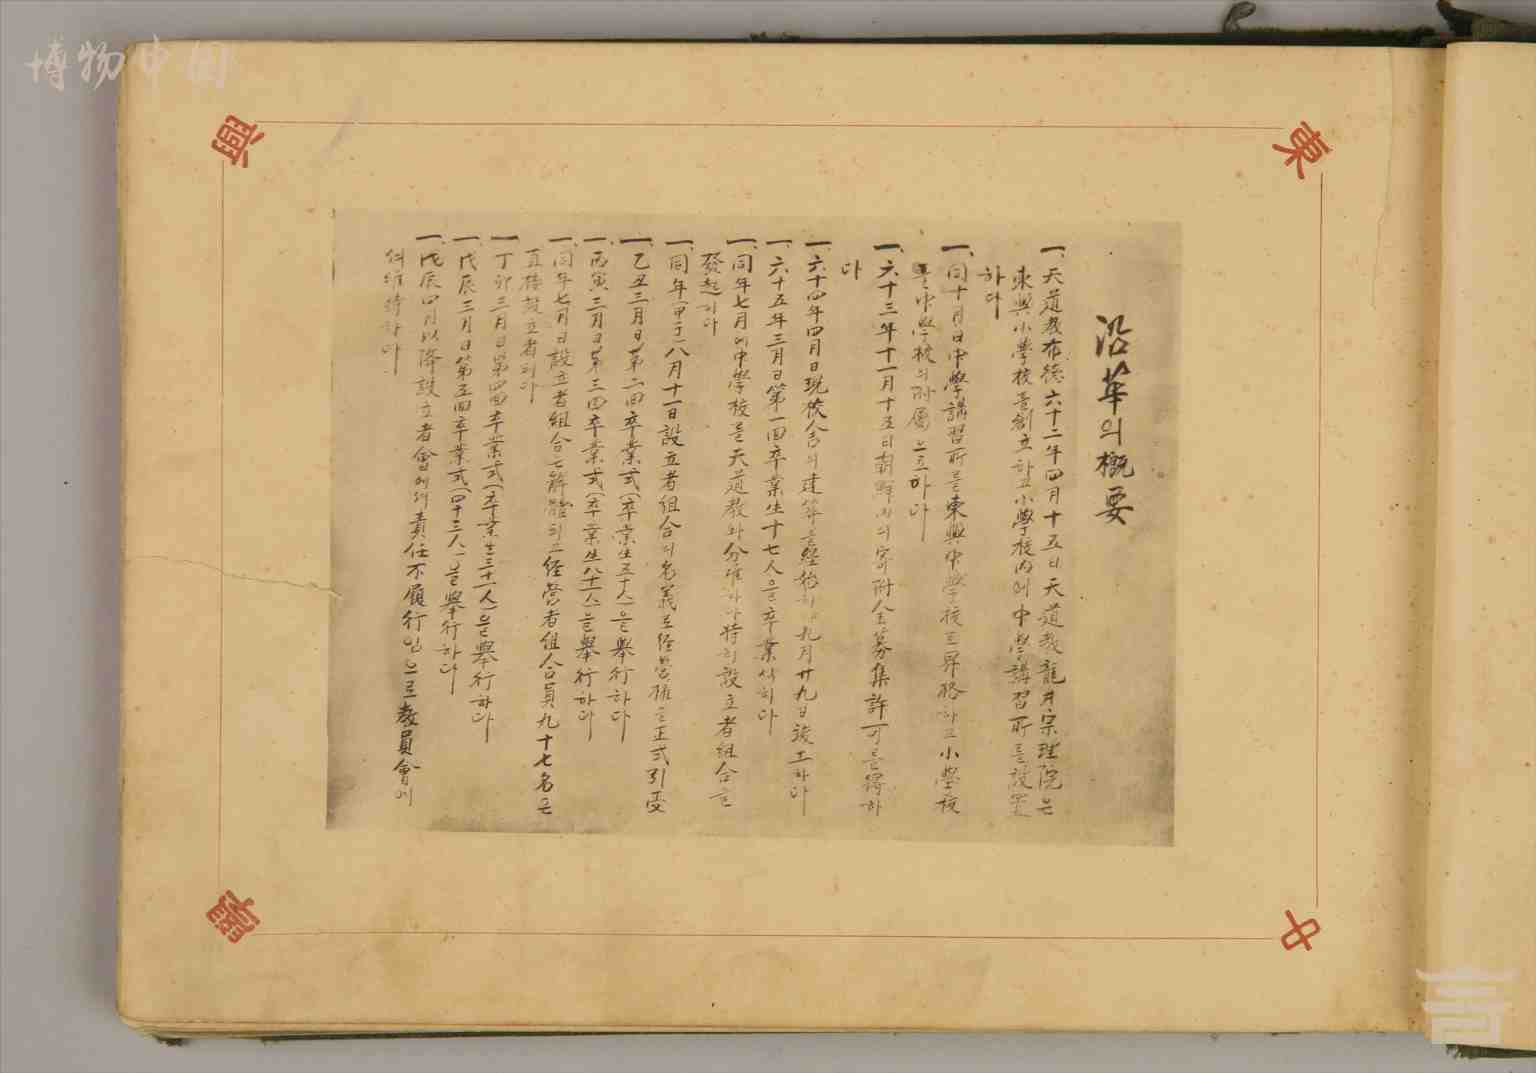 博物中国
東
興
中
學
沿革의槪要
一、天道敎布德六十二年四月十五日天道敎龍井宗理院은
東興小學校를創立하고小學校內에中學講習所를設置
하다
一、同十月日中學講習所를東興中學校로昇格하고小學校
를中學校의附屬으로하다
一、六十三年十一月十五日朝鮮內의寄附金募集許可를得하
다
一、六十四年四月日現校舍의建築을經始하야九月廿九日竣工하다
一、六十五年三月日第一回卒業生十七人을卒業식히다
一、同年七月에中學校를天道敎와分離하야特히設立者組合을
發起하다
一、同年(甲子)八月十一日設立者組合의名義로經營權을正式引受
一、乙丑三月日第二回卒業式(卒業生五十人)을擧行하다
一、丙寅三月日第三回卒業式(卒業生八十人)을擧行하다
一、同年七月日設立者組合은解體되고經營者組合員九十七名은
直接設立者되다
一、丁卯三月日第四回卒業式(卒業生三十一人)을擧行하다
一、戊辰三月日第五回卒業式(四十三人)을擧行하다
一、戊辰四月以降設立者會에서責任不履行임으로敎員會에
서維持하다